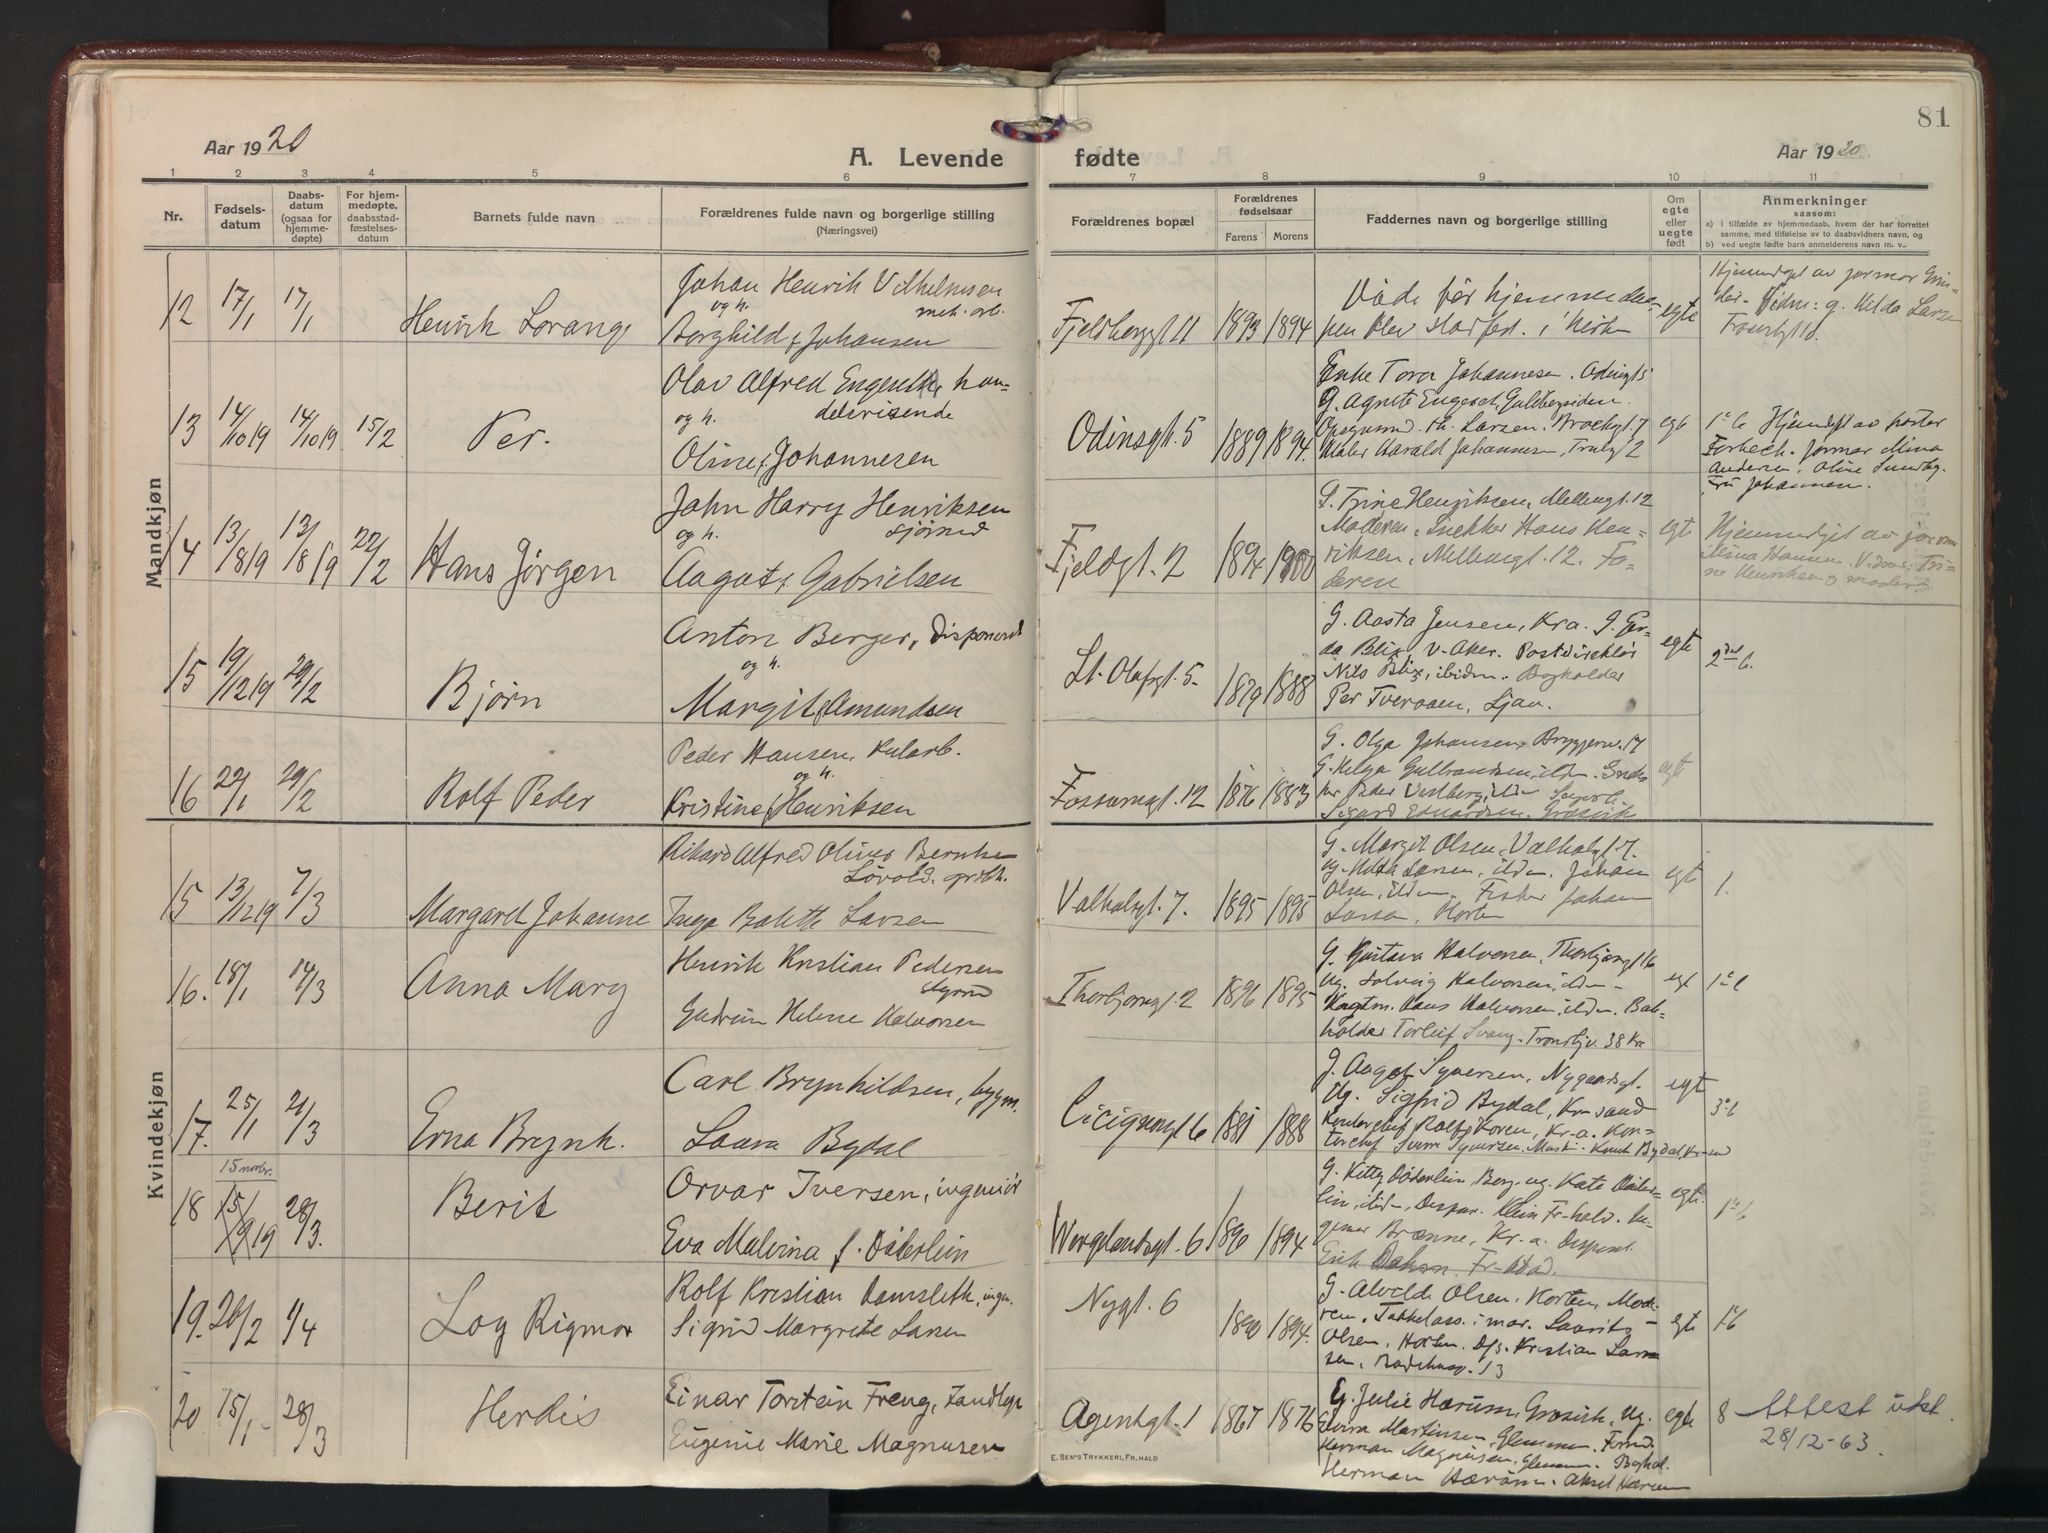 81
Aar 1920
A. Levende fødte
Aar 1920
1 2 3 4 5 6 7 8 9 10 11
Nr.
Fødsels-
datum
Daabs-
datum
(ogsaa for
hjemme-
døpte)
For hjem-
medøpte,
daabsstad-
fæstelses-
datum
Barnets fulde navn
Forældrenes fulde navn og borgerlige stilling
(Næringsvei)
Forældrenes bopæl
Forældrenes
fødselsaar
Farens Morens
Faddernes navn og borgerlige stilling
Om
egte
eller
uegte
født
Anmerkninger
saasom:
a) i tilfælde av hjemmedaab, hvem der har forrettet
samme, med tilføielse av to daabsvidners navn, og
b) ved uegte fødte barn anmelderens navn m. v.
Mandkjøn
12 17/1 17/1 Henrik Lorang
Johan Henrik Vilhelmsen
og h. mek. arb.
Borghild f. Johansen
Fjeldberggt. 11 1893 1894
Døde før hjemmedaa-
pen blev stadfest. i kirken
egte
Hjemmedøpt av jormor
Vidne: g. Hilda Larsen
13 14/10 19 14/10 19 15/2 Per.
Olav Alfred Engeseth, han-
og h. delsreisende
Oline f. Johannesen
Odinsgt. 5 1889 1894.
Enke Tora Johannesen. Odinsgt 5
G. Agnete Engeseth, Guldbergsiden.
Th. Larsen. Brochsgt. 7
Maler Harald Johannesen, 2
egte
1ste Hjemmedøpt av pastor
Forbech. Jormor Mina
Andersen, Oline Sundby.
Fru Johannesen.
14 13/8 19 13/8 19 22/2 Hans Jørgen
John Harry Henriksen
og h. sjømd
Aagot f. Gabrielsen
Fjeldgt. 2 1894 1900
G. Trine Henriksen, Mellemgt. 12
Moderen, Snekker Hans Hen-
riksen, Mellemgt. 12. Fa-
deren
egte
Hjemmedøpt av jormor
Mina Hansen. Vidne: Tri-
ne Henriksen og moder
15 19/12 19 29/2 Bjørn
Anton Berger, disponent
og h.
Margit f. Amundsen
St. Olafsgt. 5- 1879 1888
G. Aasta Jensen, Kra. G. Ger-
da Blix V. Aker. Postdirektør
Nils Blix, ibiden. Bogholder
Per Tveraaen, Ljan.
egte
2det b.
16 22/1 29/2 Rolf Peder
Peder Hansen, kularb.
og h.
Kristine f. Henriksen
Fossumgt. 12 1876 1883
G. Olga Johansen, Bryggeriv. 17
G. Helga Gulbrandsen, ilden.
Peder Vestberg ilden
Sigurd Edvardsen, Græsvik
egte
Kvindekjøn
15 13/12 19 7/3 Margaret Johanne
Rikard Alfred Oliver Bernhar
Løvold.
Inga Bolette Larsen
Valhalsgt. 7. 1895 1895
G. Margit Olsen, Valhalsgt 7.
ug. Hilda Larsen, ilden. Johan
Olsen, ilden. Fisker Johan
Larsen, Horten
egte
1.
16. 18/1 14/3 Anna Mary
Henrik Kristian Pedersen
Gudrun Helene Halvorsen
Thorbjørnsgt. 2 1896 1895
G. Gustava Halvorsen, Thorbjørnsgt 16
Ug. Solveig Halvorsen, ilden -
Hans Halvorsen, ilden. Bok-
holder Torleif Svang. Trondhjv. 38 Kra
1ste b
17. 25/1 21/3 Erna Brynh.
Carl Brynhildsen, bygm.
Laura Bydal
Cicignongt 6 1881 1888
G. Aagot Syversen, Nygaardsgt.
Ug. Sigfrid Bydal, Kr-sand
Rolf Loren, Kr-a. Kon-
torchef Syversen. Mask. Knut Bydal, Kr-sand
egte
3. b
15 novbr.
18 15/9 19 28/3. Berit
Orvar Iversen, ingeniør
Eva Malvina f. Døderlein
Wergelandsgt. 6 1890 1894
G. Kitty Døderlein, Berg. ug. Kate Døder-
lein, ilden, Klein Fr-hald. In-
geniør Brænne, Kr-a. Dispon.
Erik Fr-hald.
egte.
1ste b
19. 26/2 4/4 Loy Rigmor
Rolf Kristian Damsleth, ingen.
Sigrid Margrete Larsen
Nygt. 6 1890 1894.
G. Alvilde Olsen, Horten, Mode-
ren, Takkelass. i mar. Lauritz
Olsen, Horten. Kristian Lar-
sen, Badehusg. 13
egte
1. b
20 15/1- 28/3 Herdis
Einar Torstein Freng, tandlæge
Eugenie Marie Magnusen
Agentgt. 1 1867 1876
Eg. Julie Hærum, Græsvik, ug.
Elvira Martinsen, Glemmen.
Herman Magnusen, Glemmen. Boghol.
Herman Hærum. Aksel Hærum
egte
8 Attest utst.
28/12-63.
E. SEM'S TRYKKERI, FR.HALD